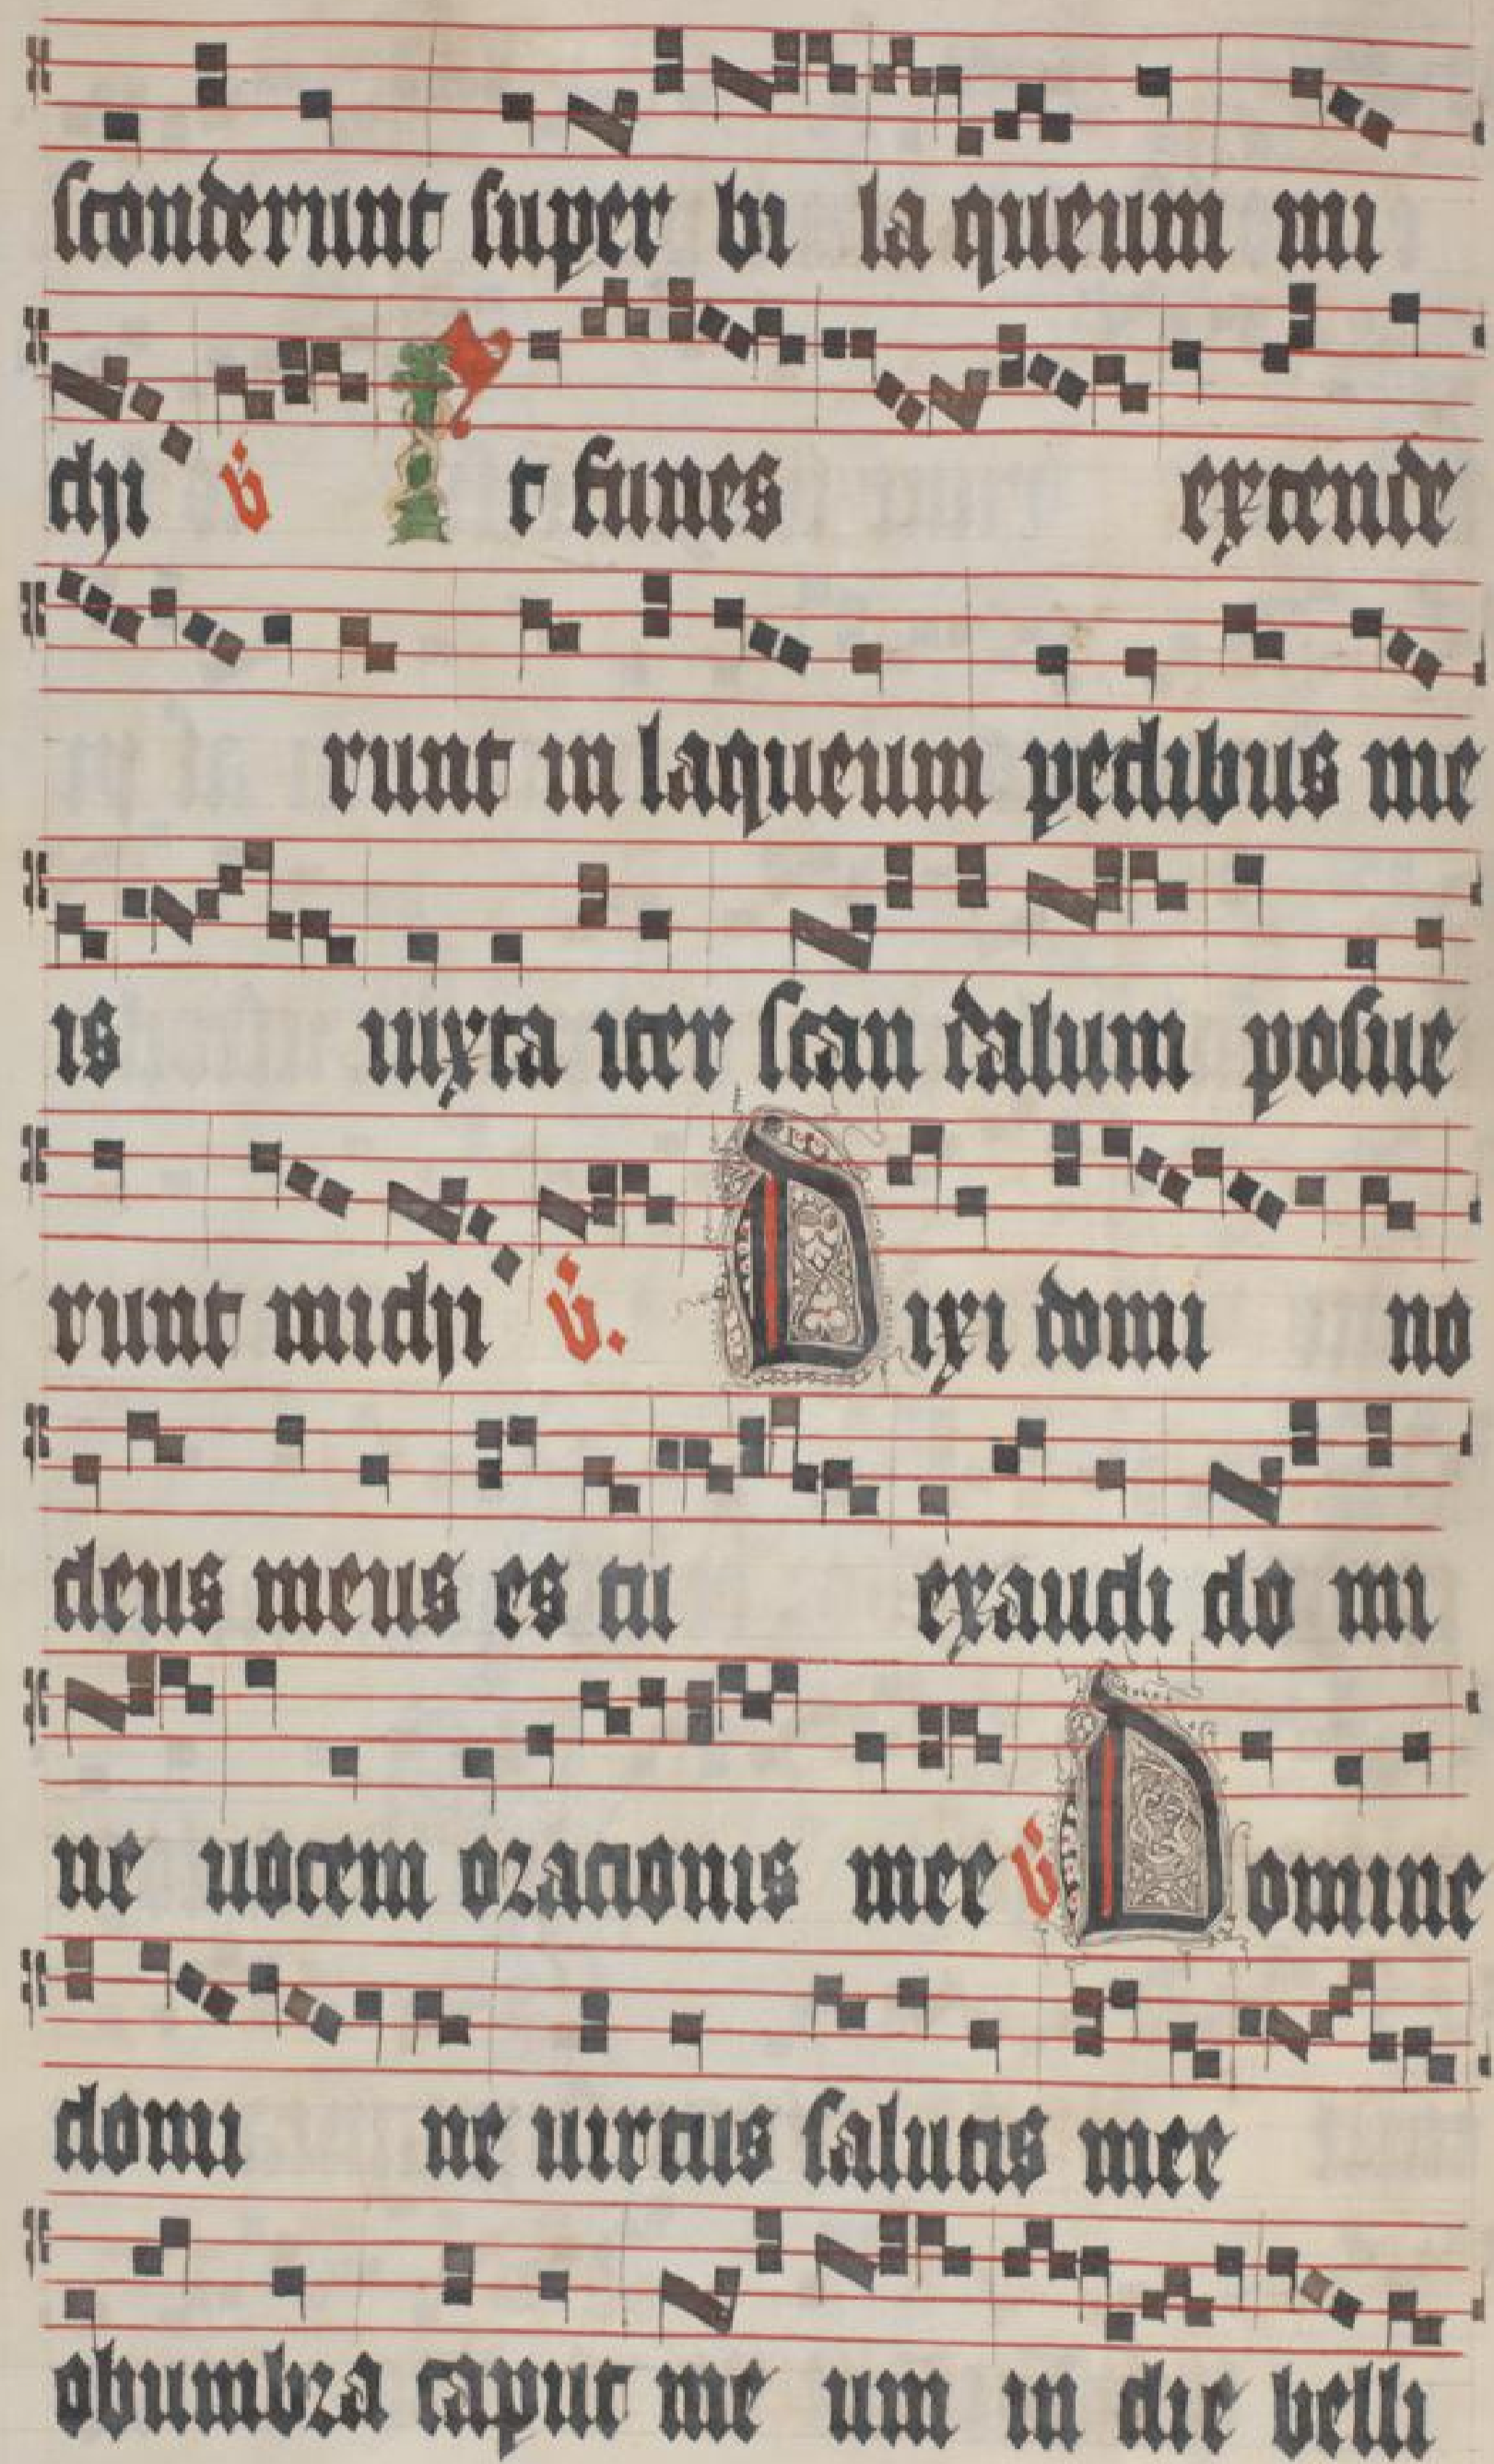 sconderunt super bi la queum mi
chi v̇ Et funes extende
runt in laqueum pedibus me
is iuxta iter scan dalum posue
runt michi v̇. Dixi domi no
deus meus es tu exaudi do mi
ne uocem oracionis mee v̇ Domine
domi ne uirtus salutis mee
obumbra caput me um in die belli